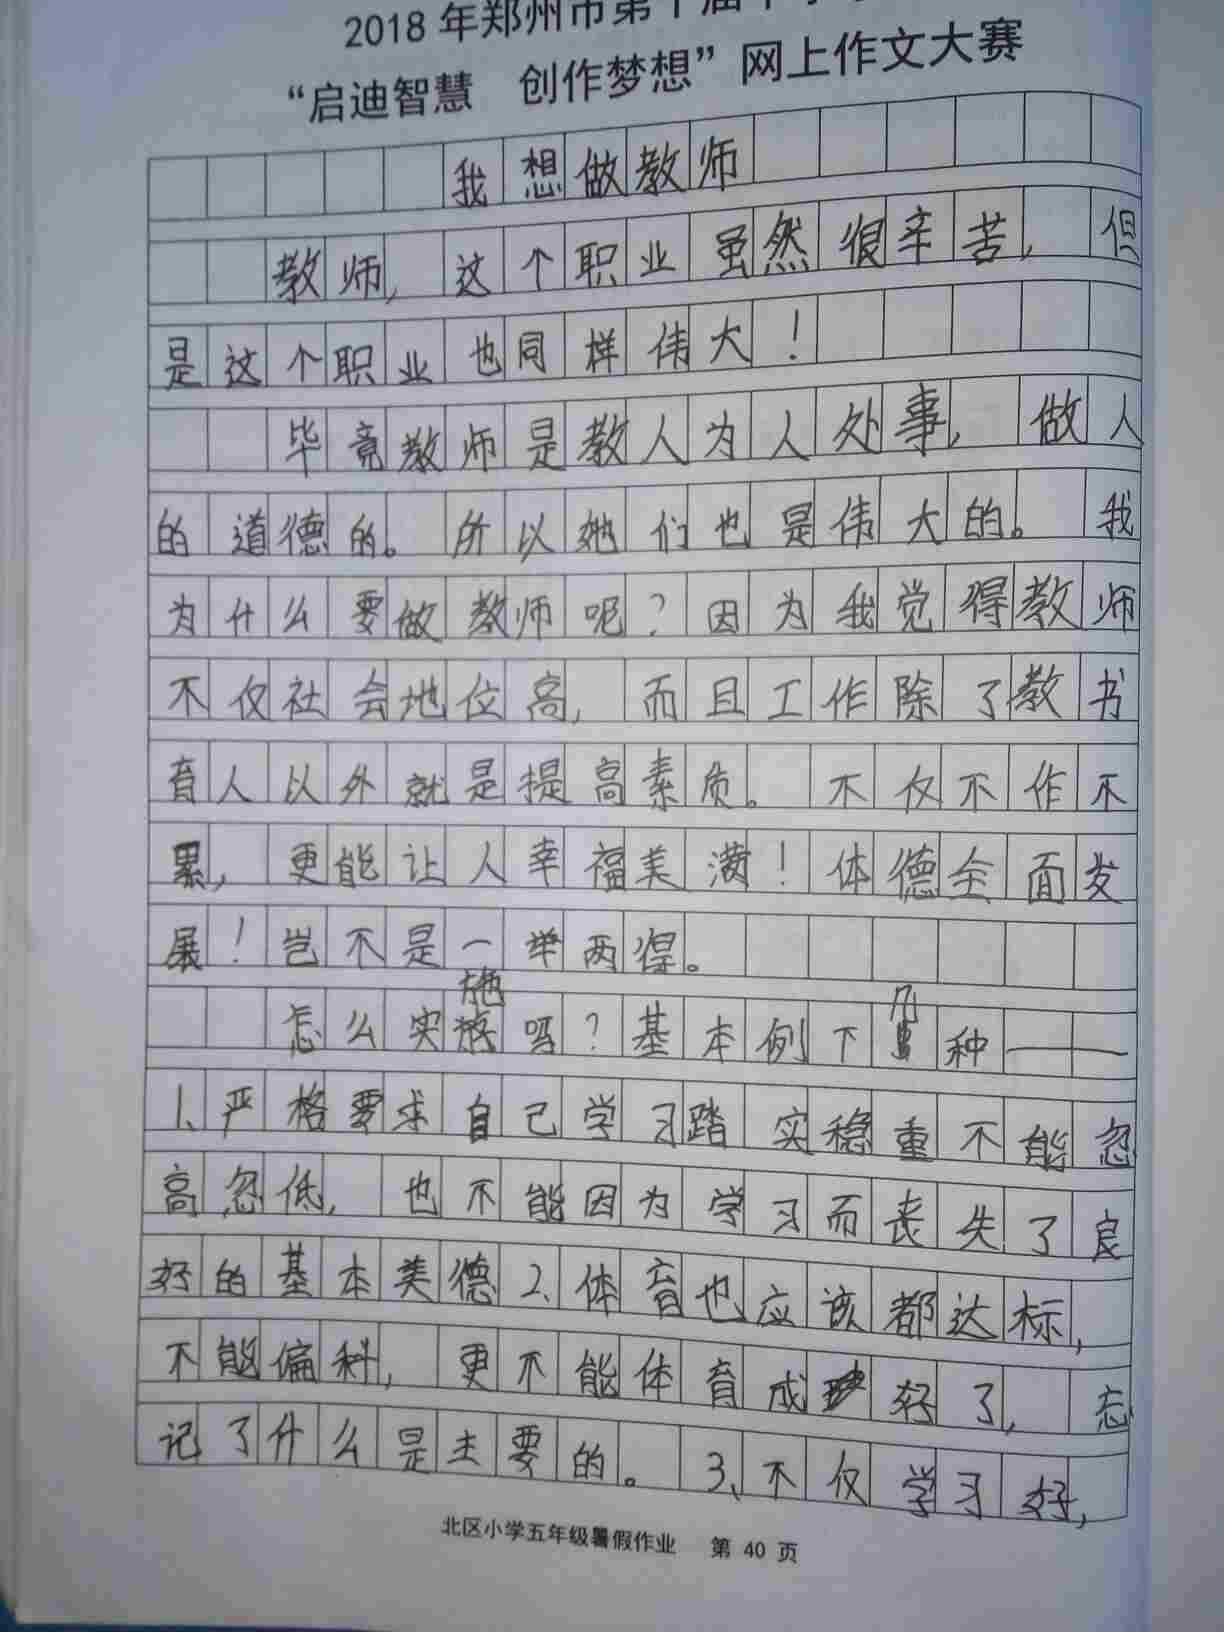 2018年郑州市第十届中小学
“启迪智慧 创作梦想”网上作文大赛
我想做教师
教师,这个职业虽然很辛苦,但
是这个职业也同样伟大!
毕竟教师是教人为人处事,做人
的道德的。所以她们也是伟大的。我
为什么要做教师呢?因为我觉得教师
不仅社会地位高,而且工作除了教书
育人以外就是提高素质。不仅不作不
累,更能让人幸福美满!体德全面发
展!岂不是一举两得。
怎么实施吗?基本例下几种——
1、严格要求自己学习踏实稳重不能忽
高忽低,也不能因为学习而丧失了良
好的基本美德2、体育也应该都达标,
不能偏科,更不能体育成好了,忘
记了什么是主要的。3、不仅学习好,
北区小学五年级暑假作业 第 40 页